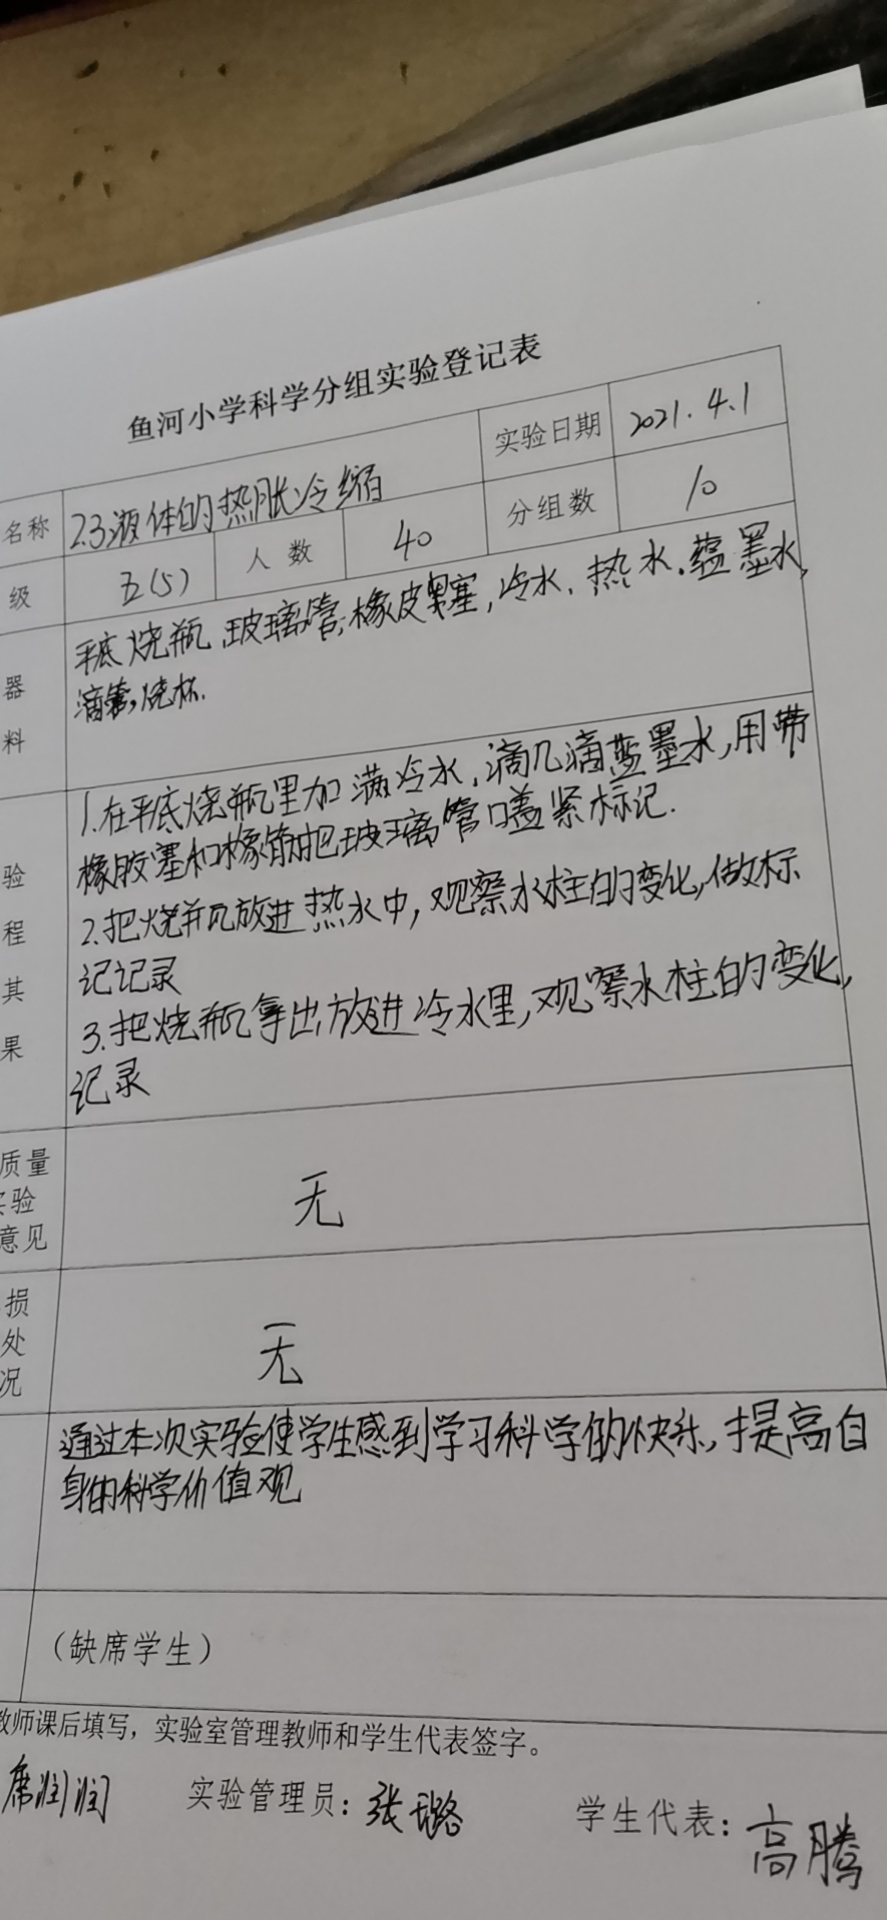 鱼河小学科学分组实验登记表
名称 2.3液体的热胀冷缩 实验日期 2021.4.1
级 五(5) 人数 40 分组数 10
器 平底烧瓶、玻璃管、橡皮塞,冷水、热水、蓝墨水,
料 滴管,烧杯.
1.在平底烧瓶里加满冷水,滴几滴蓝墨水,用带
验 橡胶塞和橡筋把玻璃管口盖紧标记.
程 2.把烧瓶放进热水中,观察水柱的变化,做标
其 记记录
果 3.把烧瓶拿出,放进冷水里,观察水柱的变化,
记录
质量
实验 无
意见
损
处 无
况
通过本次实验使学生感到学习科学的快乐,提高自
身的科学价值观
(缺席学生)
教师课后填写,实验室管理教师和学生代表签字。
席润润 实验管理员:张璐 学生代表:高腾